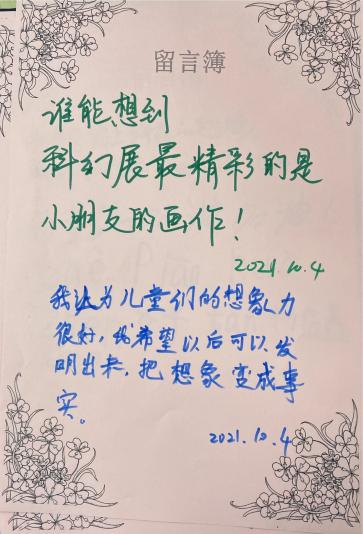 留言簿
谁能想到
科幻展最精彩的是
小朋友的画作！
2021.10.4
我认为儿童们的想象力
很好，我希望以后可以发
明出来，把想象变成事
实。
2021.10.4